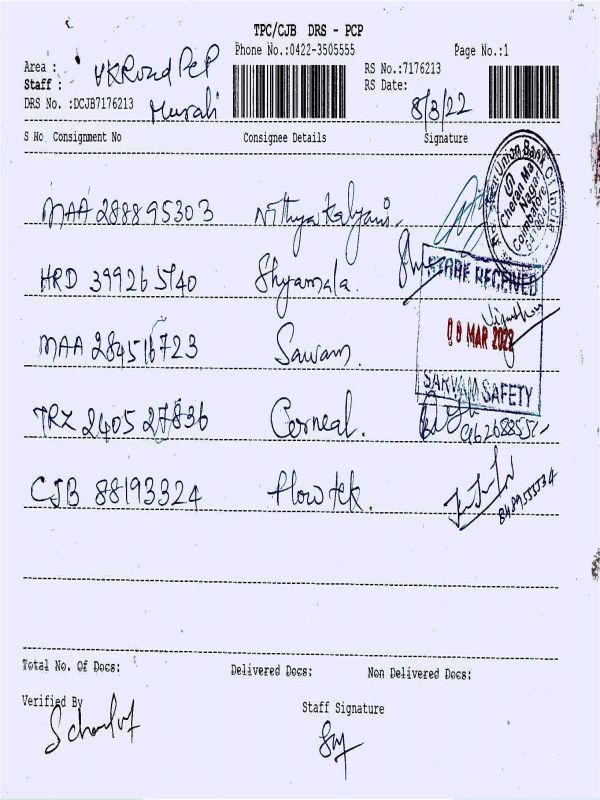 TPC/CJB DRS - PCP
Phone No.:0422-3505555
Page No.:1
Area : VKRoad PCP
RS No.:7176213
Staff : Murali
RS Date: 8/3/22
DRS No. :DCJB7176213
S No Consignment No Consignee Details Signature
MAA 288895303 Nithya Kalyani
HRD 399265740 Shyamala.
RECEIVED
MAA 284516723 Sarvam.
08 MAR 2022
SARVAM SAFETY
TRZ 240527836 Corneal.
CJB 88193324 Flowtek.
8489555534
Total No. Of Docs: Delivered Docs: Non Delivered Docs:
Verified By
Staff Signature